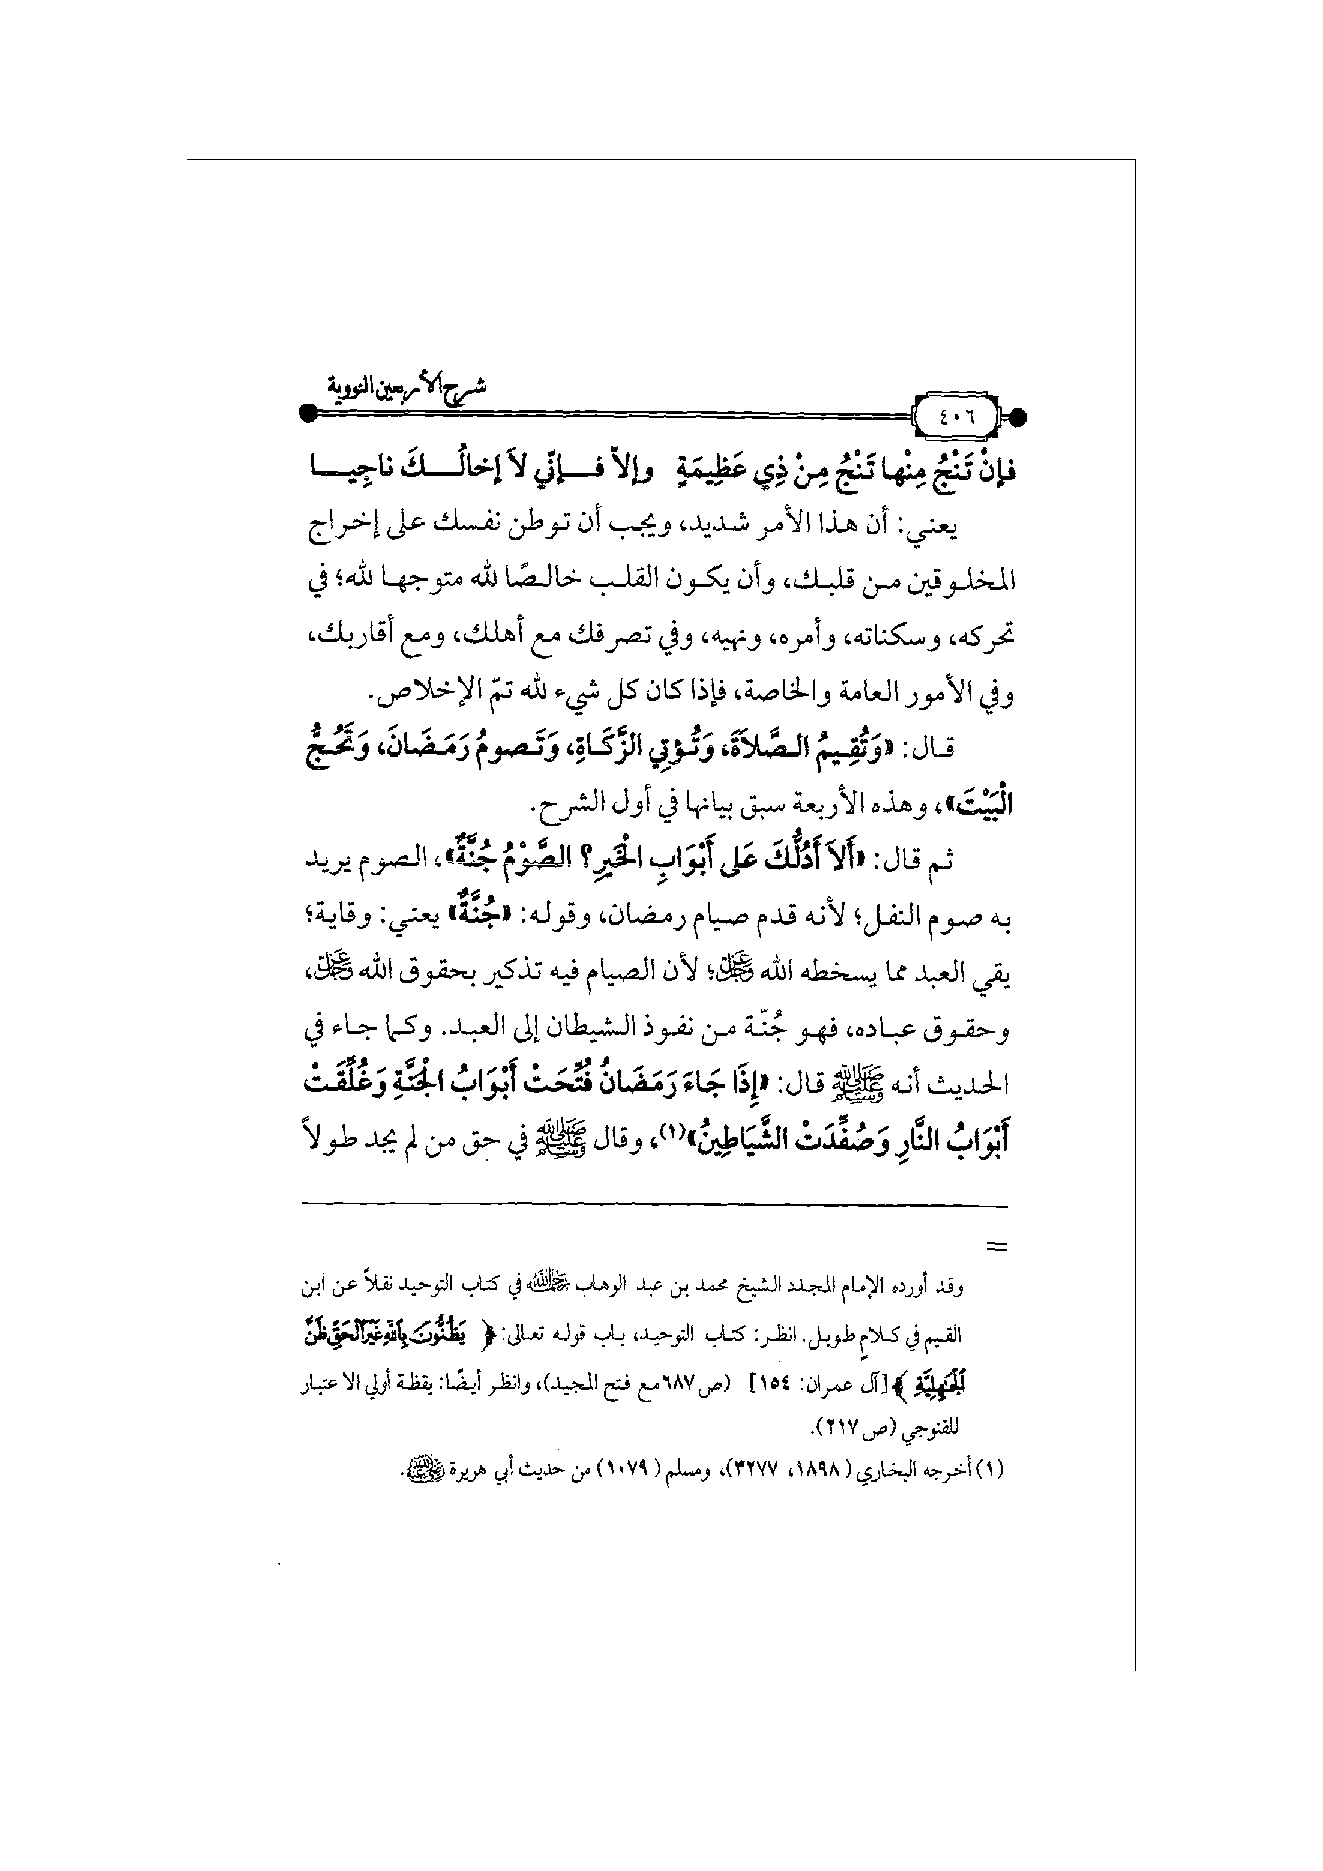 شرح الأربعين النووية
٤٠٦
فإنْ تَنْجُ مِنْها تَنْجُ مِنْ ذِي عَظِيمَةٍ وإلاّ فـــإنّي لاَ إخالُـــكَ ناجِيـــا
يعني: أن هذا الأمر شديد، ويجب أن توطن نفسك على إخراج
المخلوقين من قلبك، وأن يكون القلب خالصًا لله متوجها لله؛ في
تحركه، وسكناته، وأمره، ونهيه، وفي تصرفك مع أهلك، ومع أقاربك،
وفي الأمور العامة والخاصة، فإذا كان كل شيء لله تمّ الإخلاص.
قال: «وَتُقِيمُ الصَّلاَةَ، وَتُؤتِي الزَّكَاةِ، وَتَصومُ رَمَضَانَ، وَتَحُجُّ
الْبَيْتَ»، وهذه الأربعة سبق بيانها في أول الشرح.
ثم قال: «أَلاَ أَدُلُّكَ عَلى أَبْوَابِ الخَيرِ؟ الصَّوْمُ جُنَّةٌ»، الصوم يريد
به صوم النفل؛ لأنه قدم صيام رمضان، وقوله: «جُنَّةٌ» يعني: وقاية؛
يقي العبد مما يسخطه الله ﷿؛ لأن الصيام فيه تذكير بحقوق الله ﷿،
وحقوق عباده، فهو جُنّة من نفوذ الشيطان إلى العبد. وكما جاء في
الحديث أنه ﷺ قال: «إِذَا جَاءَ رَمَضَانُ فُتِّحَتْ أَبْوَابُ الجَنَّةِ وَغُلِّقَتْ
أَبْوَابُ النَّارِ وَصُفِّدَتْ الشَّيَاطِينُ»(١)، وقال ﷺ في حق من لم يجد طولاً
=
وقد أورده الإمام المجدد الشيخ محمد بن عبد الوهاب رحمه الله في كتاب التوحيد نقلاً عن ابن
القيم في كلامٍ طويل. انظر: كتاب التوحيد، باب قوله تعالى: ﴿ يَظُنُّونَ بِاللَّهِ غَيْرَ الْحَقِّ ظَنَّ
الْجَاهِلِيَّةِ ﴾ [آل عمران: ١٥٤] (ص٦٨٧مع فتح المجيد)، وانظر أيضًا: يقظة أولي الاعتبار
للقنوجي (ص٢١٧).
(١) أخرجه البخاري (١٨٩٨، ٣٢٧٧)، ومسلم (١٠٧٩) من حديث أبي هريرة رضي الله عنه.